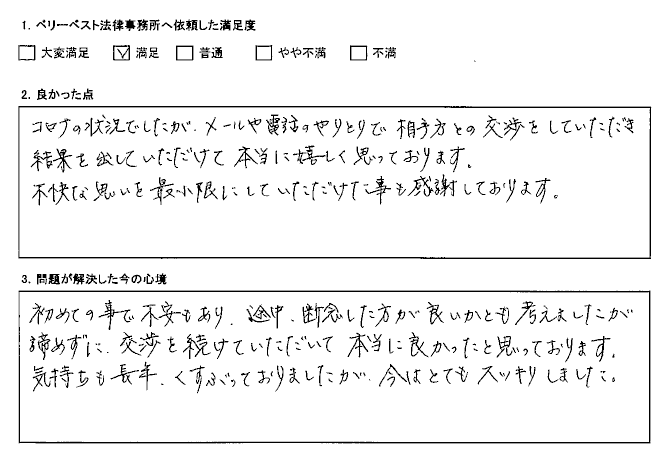 1. ベリーベスト法律事務所へ依頼した満足度
□ 大変満足 ☑ 満足 □ 普通 □ やや不満 □ 不満
2. 良かった点
コロナの状況でしたが、メールや電話のやりとりで 相手方との交渉をしていただき
結果を出していただけて 本当に嬉しく思っております。
不快な思いを最小限にしていただけた事も感謝しております。
3. 問題が解決した今の心境
初めての事で不安もあり、途中、断念した方が良いかとも考えましたが
諦めずに、交渉を続けていただいて 本当に良かったと思っております。
気持ちも長年、くすぶっておりましたが、今はとてもスッキリしました。